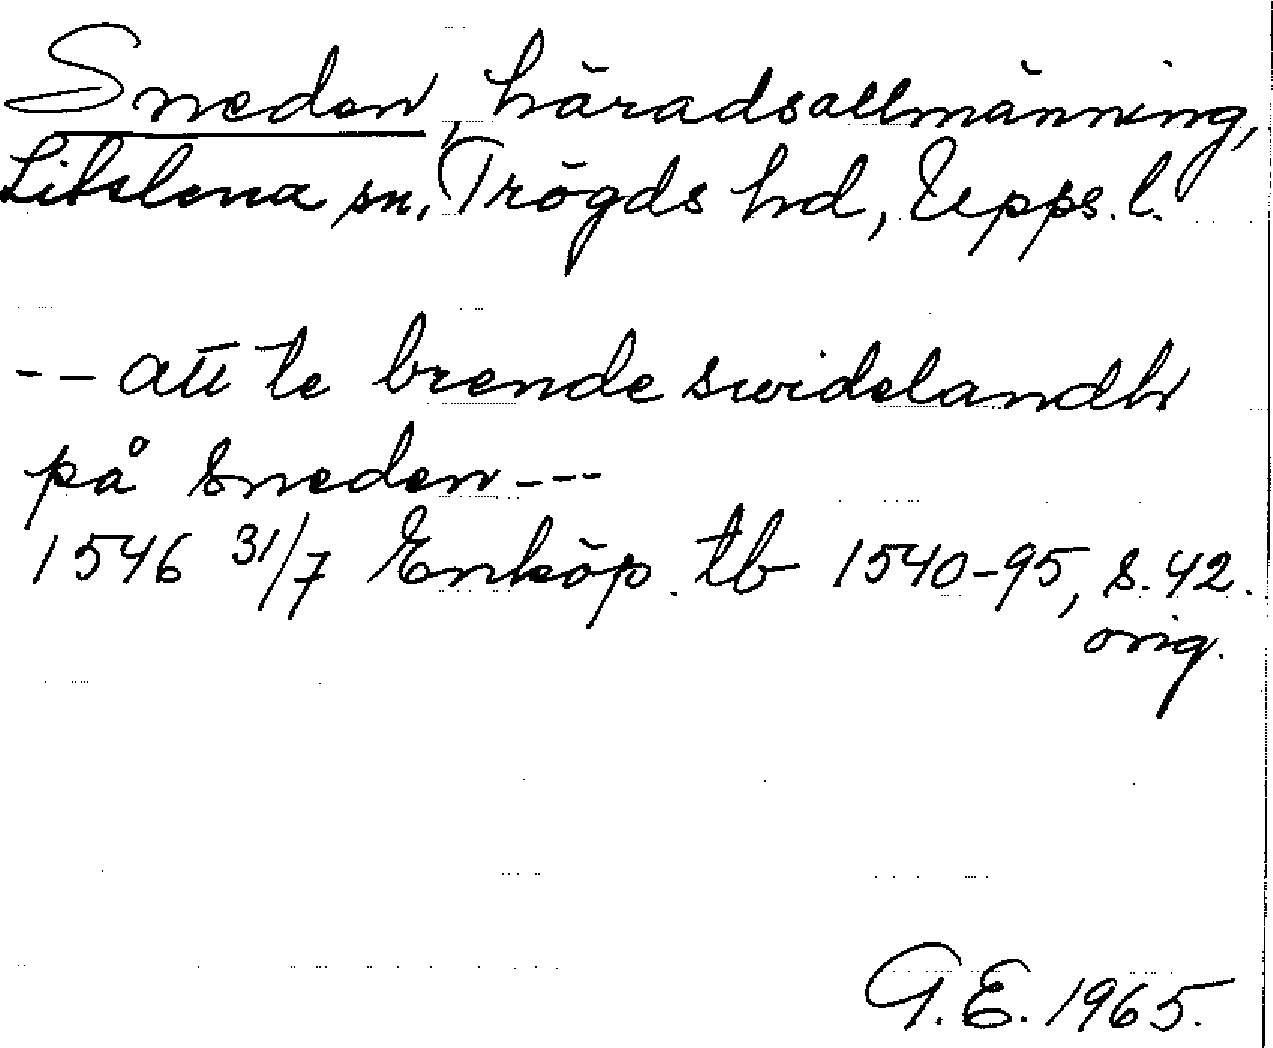 Sneden, häradsallmänning,
Litslena sn, Trögds hd, Upps. l.
-- att te brende swidelandh
på sneden ---
1546 31/7 Enköp. tb 1540-95, s. 42.
orig.
G.E. 1965.